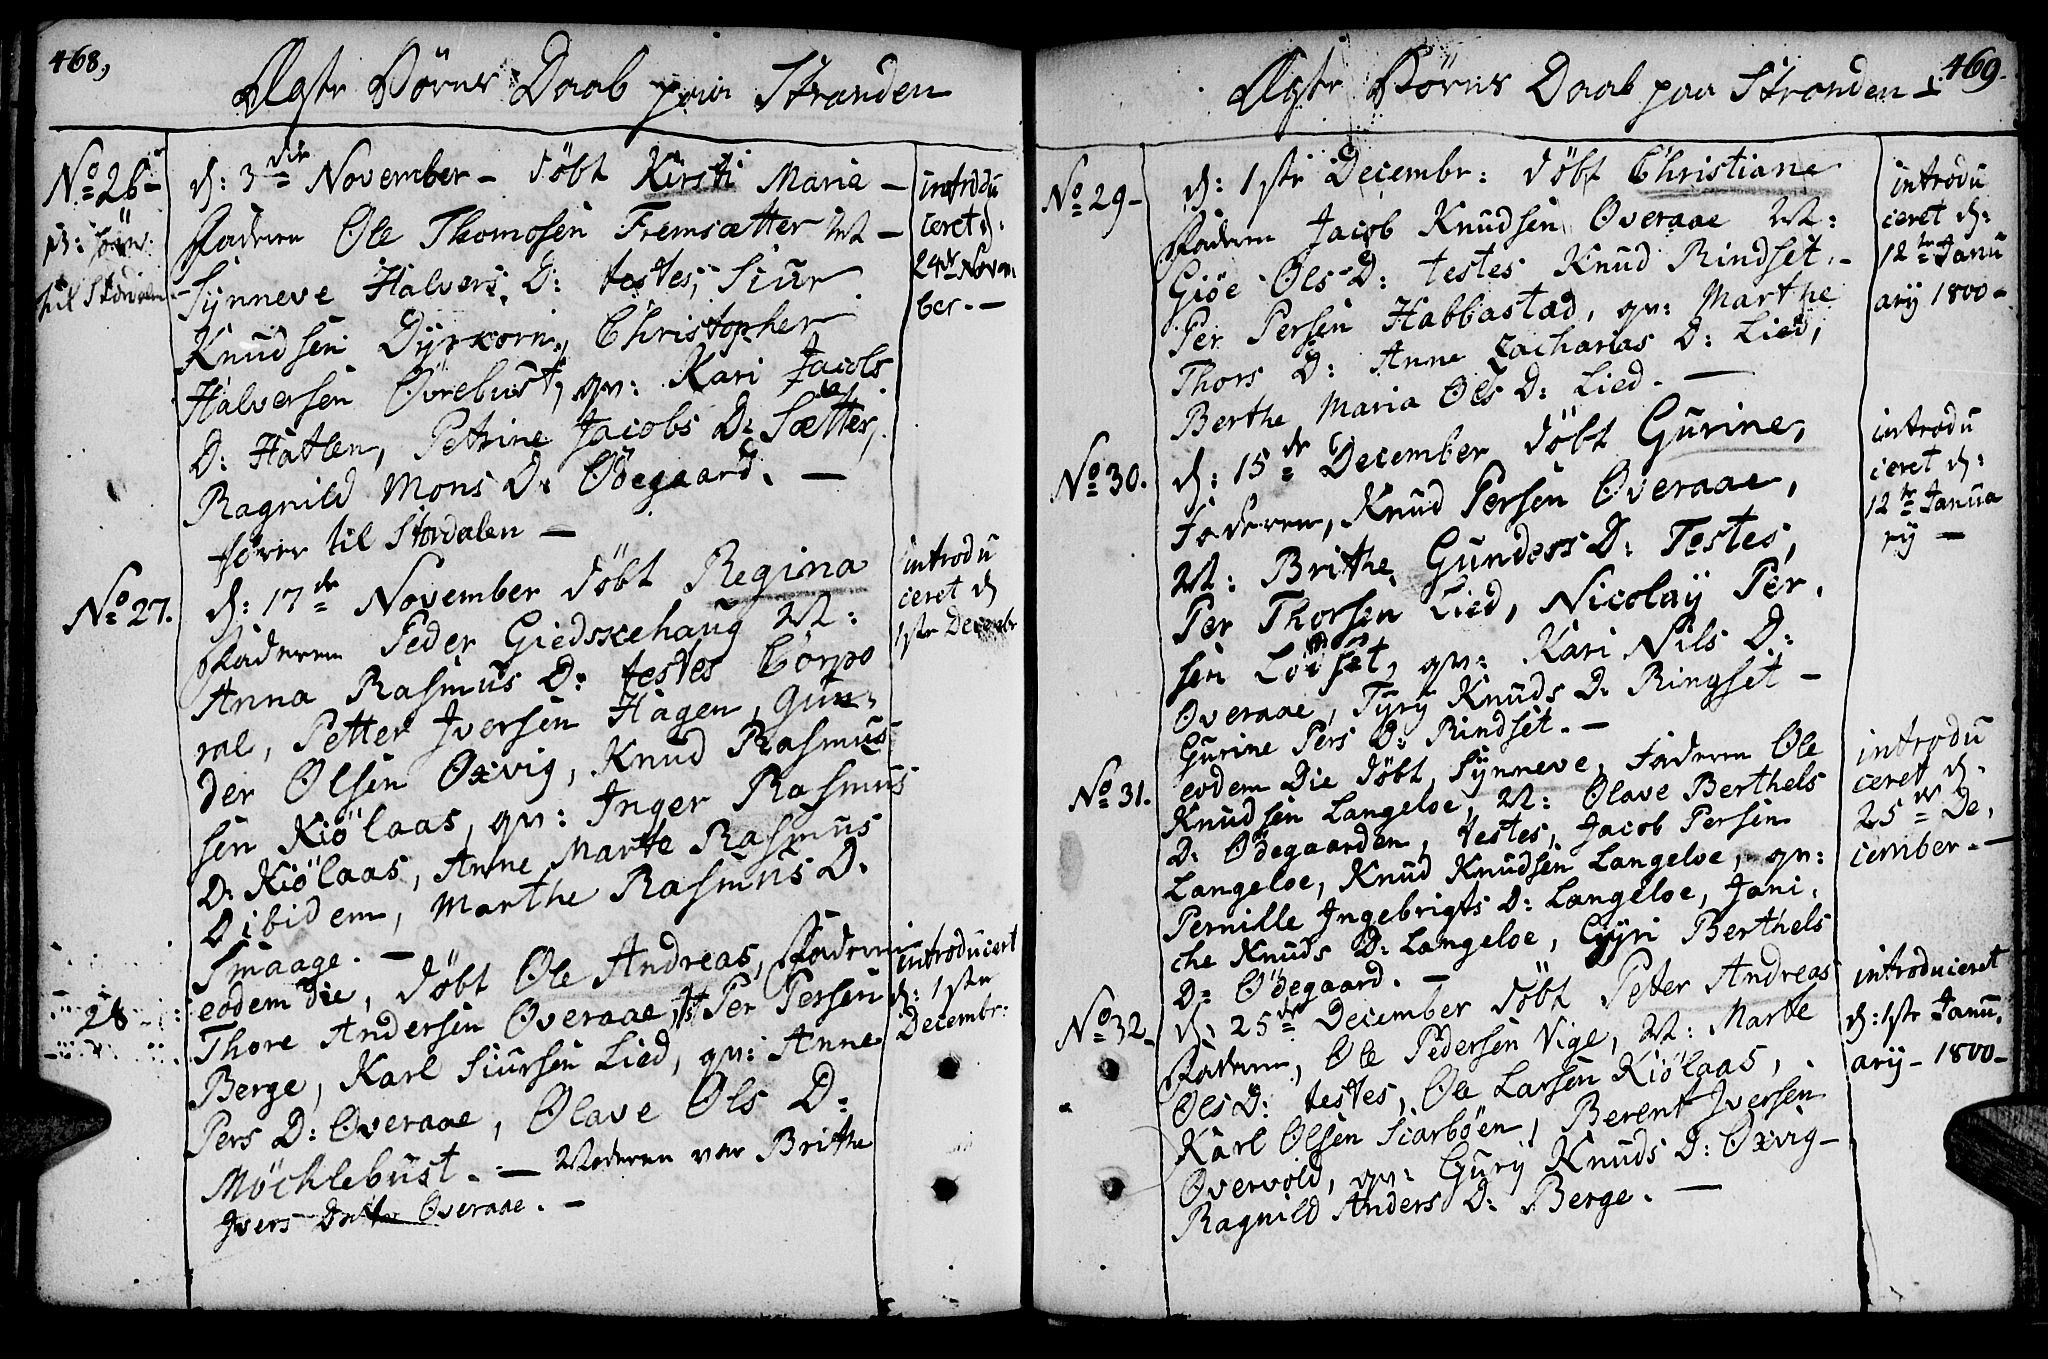 468,
Ægte Börns Daab paa Stranden
No 26-
til Stordalen
d: 3die November - döbt Kirsti Maria -
Faderen Ole Thomosen Fremsætter M -
Synneve Halvers D: testes, Siur
Knudsen Dyrkorn, Christopher
HalversenÖvrebust, qv: Kari Jacobs
D: Hatlen, Petrine Jacobs D: Sætter,
Ragnild Mons D: Ödegaard. -
hörer til Stordalen -
introdu
ceret d:
24de Novem
ber. -
No 27.
d: 17de November döbt Regina
Faderen Peder Giedskehaug M:
Anna Rasmus D: testes Corpo
ral, Petter Iversen Hagen, Gun-
der Olsen Oxvig, Knud Rasmus
sen Kiölaas, qv: Inger Rasmus
D: Kiölaas, Anne Marte Rasmus
D ibidem, Marthe Rasmus D.
Smaage. -
introdu
ceret d
1ste Decembr
28
eodem die, döbt Ole Andreas, Faderen
Thore Andersen Overaae, ts Per Persen
Berge, Karl Siursen Lied, qv: Anne
Pers D: Overaae, Olave Ols D:
Möchlebust. - Moderen var Brithe
Ivers Datter Overaae. -
introduciert
d: 1ste
Decembr:
469-
Ægte Börns Daab paa Stranden -
No 29-
d: 1ste Decembr: döbt Christiane
Faderen Jacob Knudsen Overaae M:
Giöe Ols D: testes Knud Rindset, -
Per Persen Habbastad, qv: Marthe
Thors D: Anne Zacharias D: Lied,
Berthe Maria Ols D: Lied. -
introdu
ceret d:
12te Janu
arij 1800-
No 30.
d: 15de December döbt Gurine,
Faderen, Knud Persen Overaae,
M: Brithe Gunders D: Testes,
Per Thorsen Lied, Nicolaij Per,
sen Löiset, qv: Kari Nils D:
Overaae, Tyry Knuds D: Ringset -
Gurine Pers D: Rindset. -
introdu
ceret d:
12te Janua
rij -
No 31.
eodem Die döbt, Synneve, Faderen Ole
Knudsen Langeloe, M: Olave Berthels
D: Ödegaarden, testes, Jacob Persen
Langeloe, Knud Knudsen Langeloe, qv:
Pernille Ingebrigts D: Langeloe, Jani,
che Knuds D: Langeloe, Gyri Berthels
D: Ödegaard. -
introdu
ceret d.
25de De,
cember. -
No 32-
d: 25de December döbt Peter Andreas
Faderen, Ole Pedersen Vige, M: Marte
Ols D: testes, Ole Larsen Kiölaas,
Karl Olsen Siarböen, Berent Iversen
Overvold, qv: Gurij Knuds D: Oxvig-
Ragnild Anders D: Berge. -
introduceret
d: 1ste Janu,
arij - 1800-